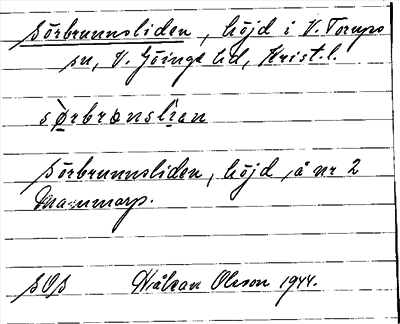 Sörbrunnsliden, höjd i V. Torups
sn, V. Göinge hd, Krist. l.
sørbrɔnslian
Sörbrunnsliden, höjd å nr 2
Magnmarp.
SOS Håkan Olsson 1944.